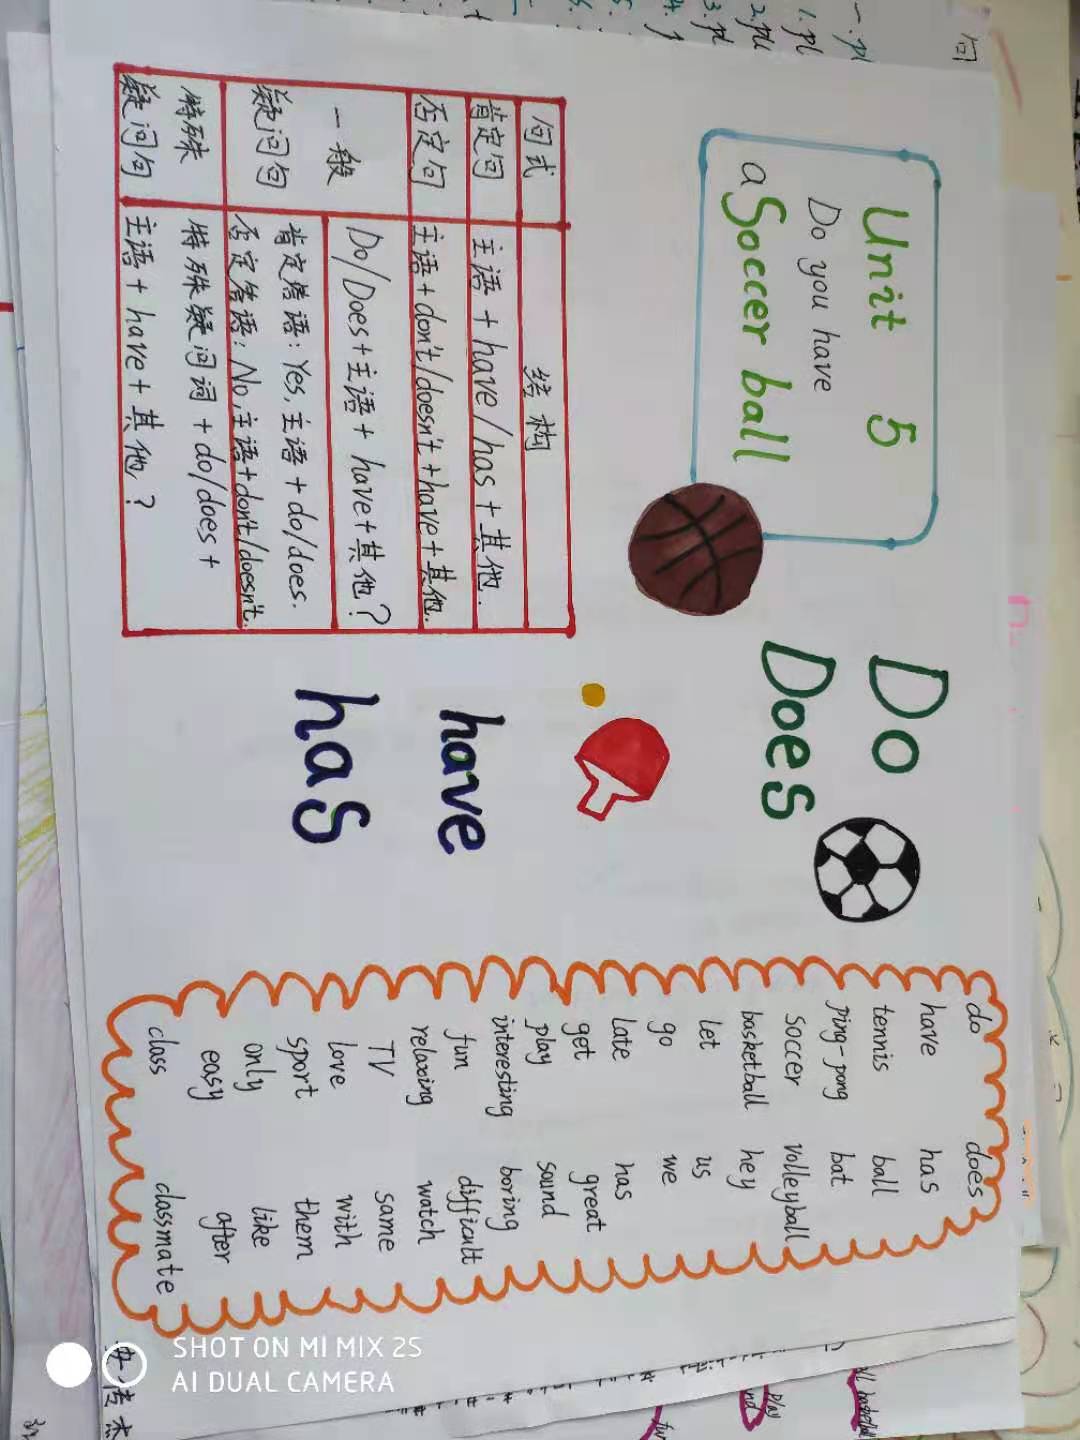 Unit 5
Do you have
a Soccer ball
Do
Does
have
has
句式 结构
肯定句 主语 + have/has + 其他.
否定句 主语 + don't/doesn't + have + 其他.
一般
疑问句
Do/Does + 主语 + have + 其他?
肯定答语: Yes, 主语 + do/does.
否定答语: No, 主语 + don't/doesn't.
特殊
疑问句
特殊疑问词 + do/does +
主语 + have + 其他?
do does
have has
tennis ball
ping-pong bat
soccer volleyball
basketball hey
let us
go we
late has
get great
play sound
interesting boring
fun difficult
relaxing watch
TV same
love with
sport them
only like
easy after
class classmate
SHOT ON MI MIX 2S
AI DUAL CAMERA